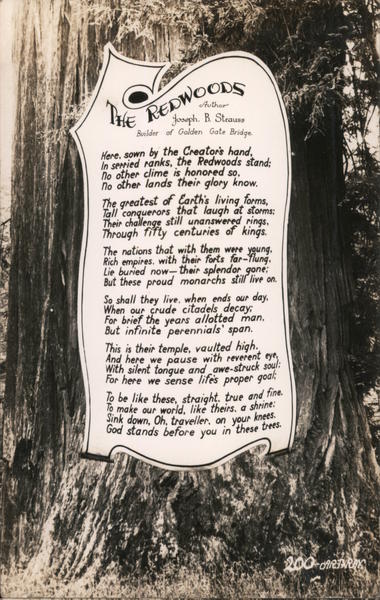 The Redwoods
Author
Joseph B. Strauss
Builder of Golden Gate Bridge.
Here, sown by the Creator's hand,
In serried ranks, the Redwoods stand;
No other clime is honored so,
No other lands their glory know.
The greatest of Earth's living forms,
Tall conquerors that laugh at storms;
Their challenge still unanswered rings,
Through fifty centuries of kings.
The nations that with them were young,
Rich empires, with their forts far-flung,
Lie buried now—their splendor gone;
But these proud monarchs still live on.
So shall they live, when ends our day,
When our crude citadels decay;
For brief the years allotted man,
But infinite perennials' span.
This is their temple, vaulted high,
And here we pause with reverent eye,
With silent tongue and awe-struck soul;
For here we sense life's proper goal;
To be like these, straight, true and fine,
To make our world, like theirs, a shrine;
Sink down, Oh, traveller, on your knees,
God stands before you in these trees.
200-ARTHRAY